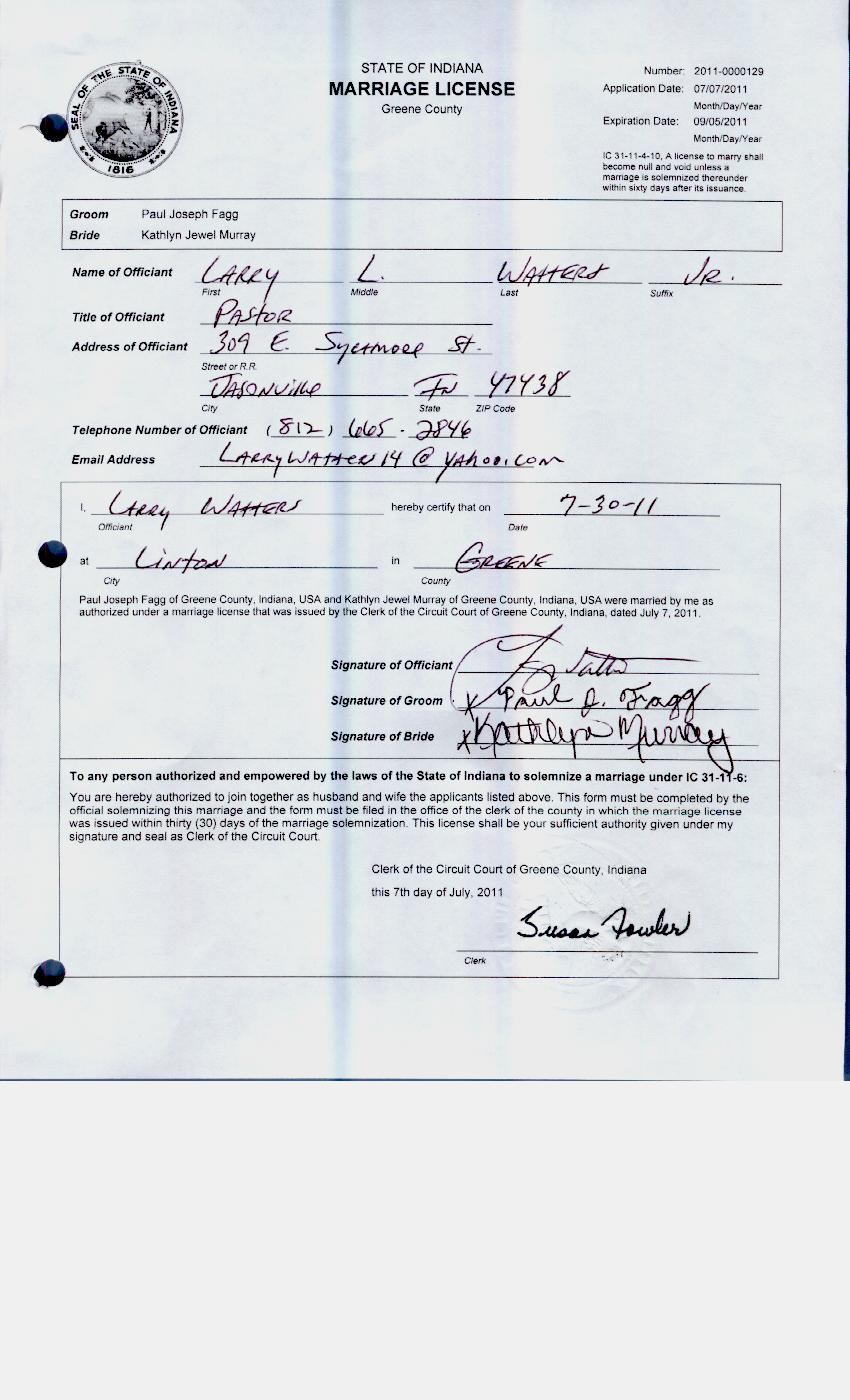 SEAL OF THE STATE OF INDIANA
1816
STATE OF INDIANA
MARRIAGE LICENSE
Greene County
Number: 2011-0000129
Application Date: 07/07/2011
Month/Day/Year
Expiration Date: 09/05/2011
Month/Day/Year
IC 31-11-4-10, A license to marry shall
become null and void unless a
marriage is solemnized thereunder
within sixty days after its issuance.
Groom Paul Joseph Fagg
Bride Kathlyn Jewel Murray
Name of Officiant LARRY L. WATTERS JR.
First Middle Last Suffix
Title of Officiant PASTOR
Address of Officiant 309 E. Sycamore St.
Street or R.R.
JASONVILLE IN 47438
City State ZIP Code
Telephone Number of Officiant (812) 665-2846
Email Address @ YAHOO.COM
I, LARRY WATTERS hereby certify that on 7-30-11
Officiant Date
at LINTON in GREENE
City County
Paul Joseph Fagg of Greene County, Indiana, USA and Kathlyn Jewel Murray of Greene County, Indiana, USA were married by me as
authorized under a marriage license that was issued by the Clerk of the Circuit Court of Greene County, Indiana, dated July 7, 2011.
Signature of Officiant
Signature of Groom x Paul J. Fagg
Signature of Bride x Kathlyn Murray
To any person authorized and empowered by the laws of the State of Indiana to solemnize a marriage under IC 31-11-6:
You are hereby authorized to join together as husband and wife the applicants listed above. This form must be completed by the
official solemnizing this marriage and the form must be filed in the office of the clerk of the county in which the marriage license
was issued within thirty (30) days of the marriage solemnization. This license shall be your sufficient authority given under my
signature and seal as Clerk of the Circuit Court.
Clerk of the Circuit Court of Greene County, Indiana
this 7th day of July, 2011
Susan Fowler
Clerk